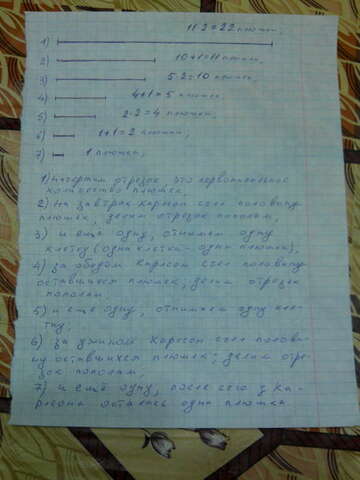 11·2=22 плюшки;
1)
2) 10+1=11 плюшек;
3) 5·2=10 плюшек;
4) 4+1=5 плюшек;
5) 2·2=4 плюшки;
6) 1+1=2 плюшки;
7) 1 плюшка;
1) начертим отрезок это первоначальное
количество плюшек,
2) на завтрак Карлсон съел половину
плюшек, делим отрезок пополам,
3) и ещё одну, отнимаем одну
клетку (одна клетка - одна плюшка),
4) за обедом Карлсон съел половину
оставшихся плюшек, делим отрезок
пополам
5) и ещё одну, отнимаем одну кле-
тку;
6) за ужином Карлсон съел полови-
ну оставшихся плюшек; делим отре-
зок пополам,
7) и ещё одну, после чего у Ка-
рлсона осталась одна плюшка.